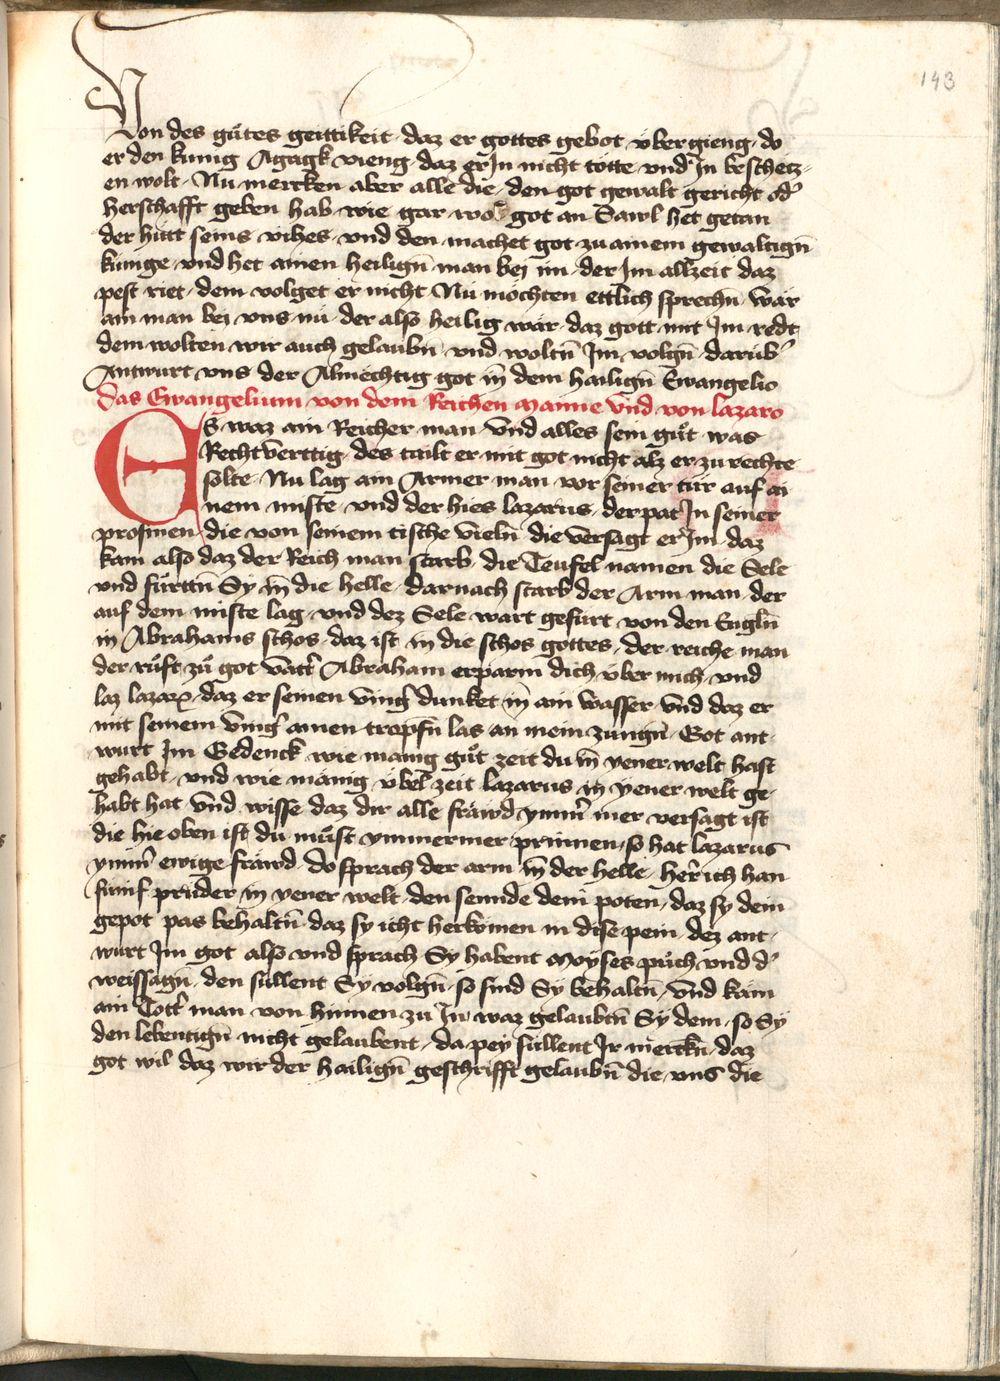 143
Von des gůtes geittikeit · daz er gottes gebot · v̈ber gieng · do
er den kunig Agagk vieng · daz er Jn nicht totte vnd Jn beschetz-
en wolt · Nu mercken aber alle die · den got gewalt gericht od̛
herschafft geben hab · wie gar wol got an Sawl het getan
der hütt seins vihes · vnd den machet got zu ainem gewaltign̄
kunige · vnd het ainen heilign̄ man bej im · der Jm allzeit daz
pest riet · dem volget er nicht Nu möchten ettlich sprechn̄ · wär
ain man bej vns nu · der also heilig wär · daz gott mit Jm redt
dem wolten wir auch gelaubn̄ · vnd woltn̄ Jm volgn̄ · darüb̛
Antwurt vns der Almechtig got in̄ dem hailign̄ Ewangelio
Das Ewangelium von dem Reichen manne vnd von lazaro
ES waz ain Reicher man · vnd alles sein gůt was
Rechtverttig · des tailt er mit got nicht alz er zu rechte
solte · Nu lag ain Armer man vor seiner tür auf ai
nem miste · vnd der hies lazarus · der pat Jn seiner
prosmen · die von seinem tische vieln̄ die versagt er Jm · daz
kam also daz der Reich man starb · die Teufel namen die Sele
vnd fürttn̄ Sy in̄ die helle · darnach starb der Arm man · der
auf dem miste lag · vnd dez Sele wart gefürt von den Engln̄
in Abrahams schos · daz ist · in die schos gottes · der reiche man
der růft zů got vatt̛ Abraham erparm dich über mich · vnd
laz lazarꝫ · daz er seinen ving̛ dunket in̄ ain wasser · vnd daz er
mit seinem ving̛ ainen tropfn̄ las an mein zungn̄ · Got ant-
wurt Jm Gedenck wie manig gůt zeit du in̄ yener welt hast
gehabt · vnd wie manig v̈bel zeit lazarus in yener welt ge-
habt hat · vnd wisse daz dir alle fräwd ymm̛ mer versagt ist
die hie oben ist du můst ymmermer prinnen · so hat lazarus
ymm̛ ewige fräwd · do sprach der arm in̄ der helle · her̛ ich han
fünf prüder in yener welt · den sennde dein poten · daz sy dein
gepot pas behaltn̄ · daz sy icht herkömen in dise pein · dez ant-
wurt Jm got also vnd sprach Sy habent moyses půch vnd d̛
weissagn̄ · den süllent Sy volgn̄ · so sind Sy behaltn̄ · vnd käm
ain Tott̛ man von hinnen zu Jn waz gelaubtn̄ Sy dem · so Sy
den lebentign̄ nicht gelaubent · da pey süllent Jr merckn̄ · daz
got wil daz wir der hailign̄ geschrifft gelaubn̄ die vns die